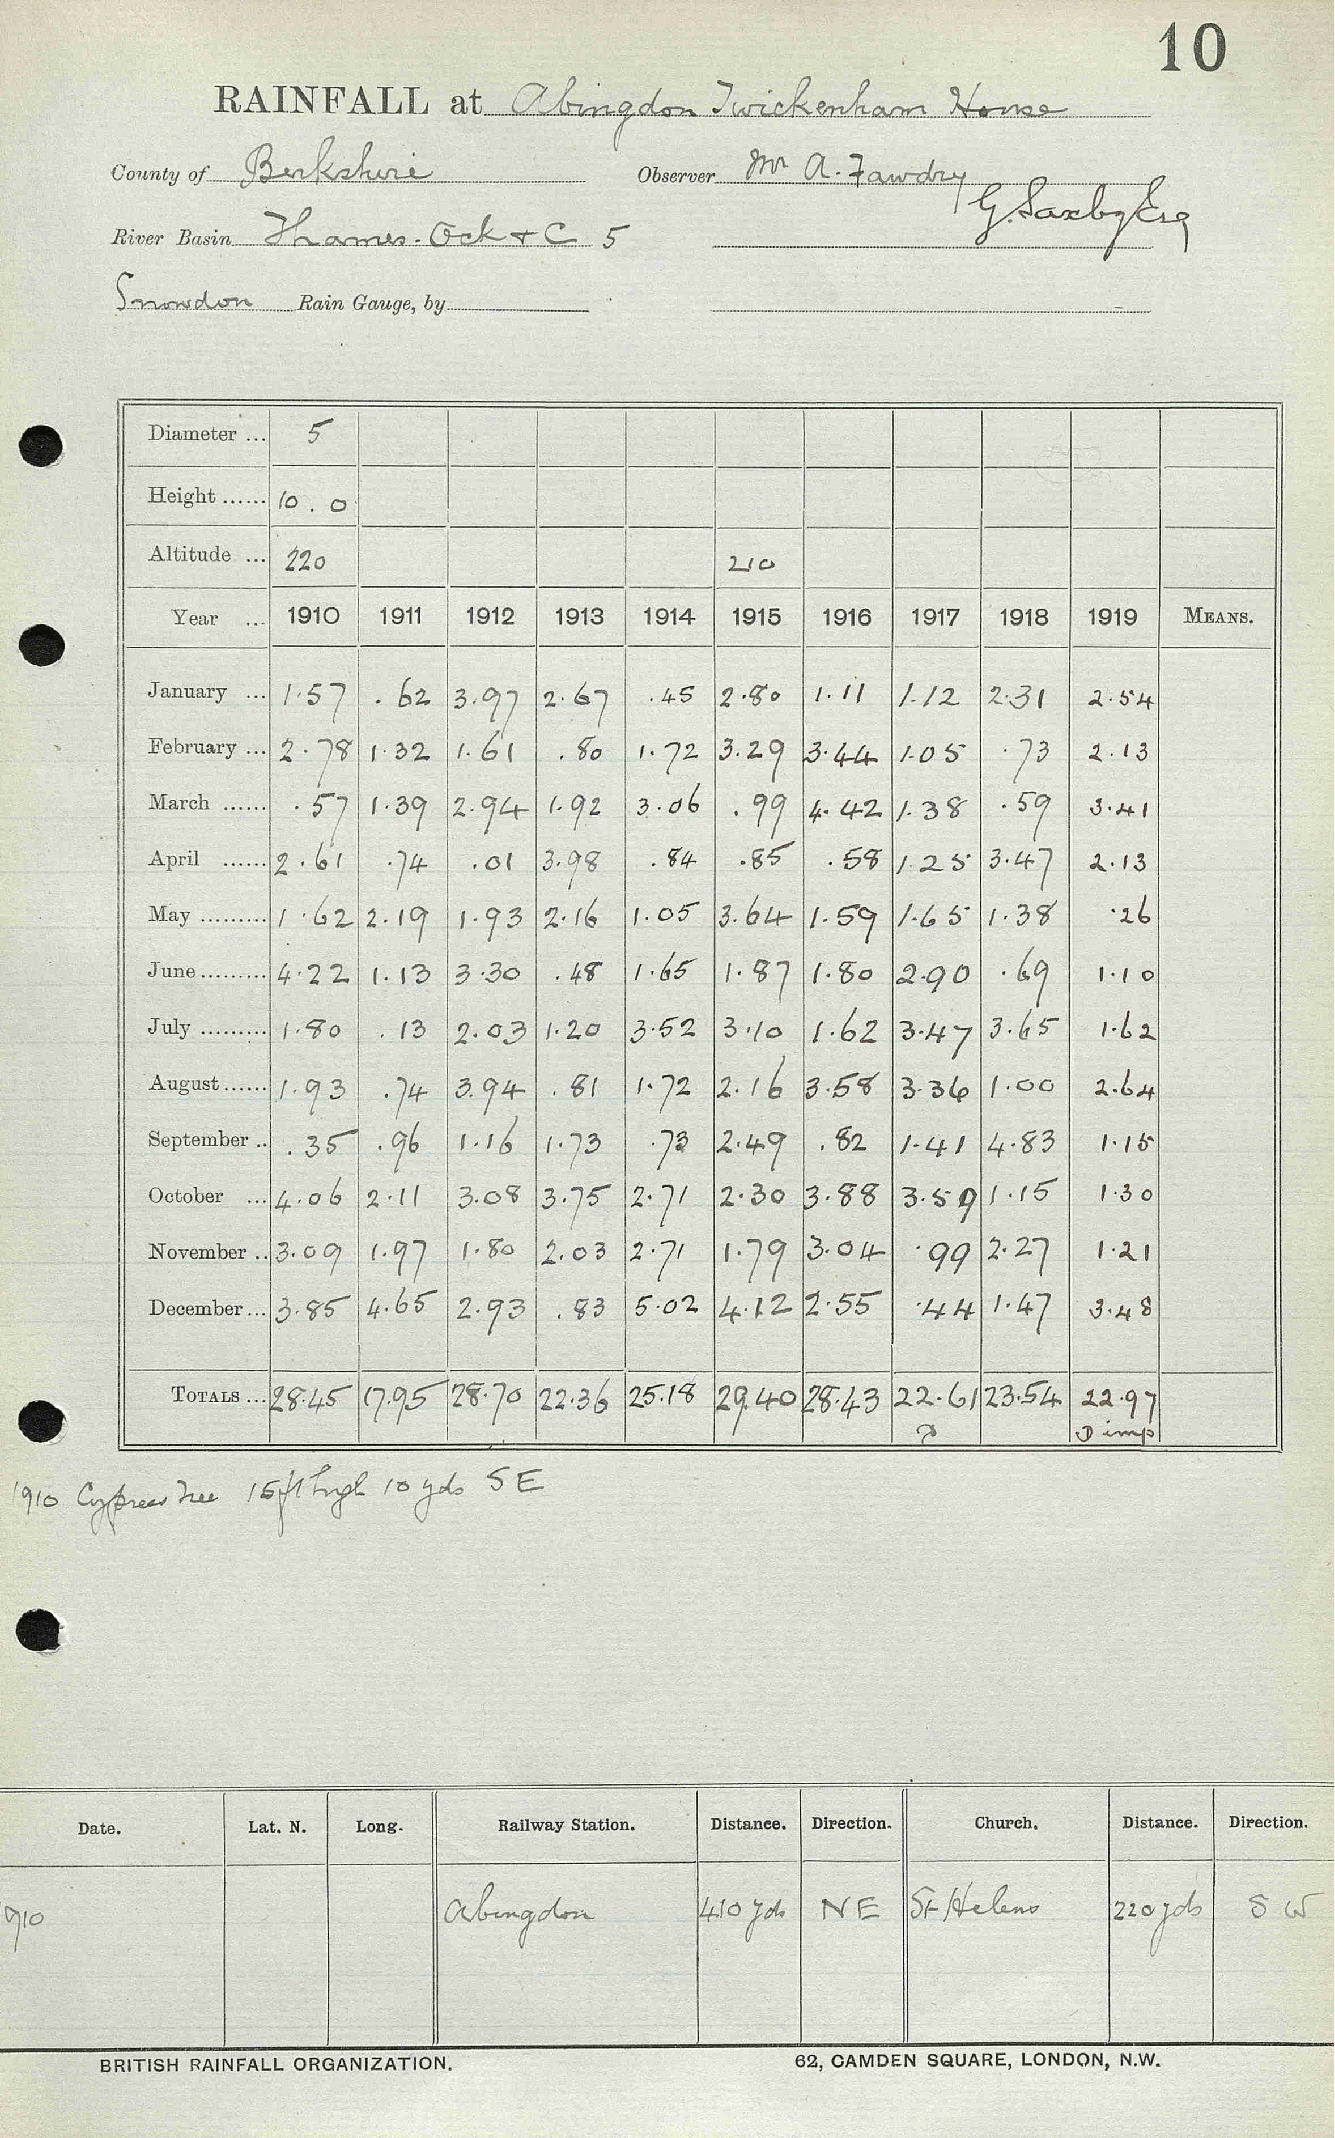 10
RAINFALL at Abingdon Twickenham House
County of Berkshire Observer Mr A. Fawdry
G. Saxby Esq
River Basin Thames. Ock & C 5
Snowdon Rain Gauge, by
Diameter ... 5
Height ...... 10 . 0
Altitude ... 220 210
Year ... 1910 1911 1912 1913 1914 1915 1916 1917 1918 1919 MEANS.
January ... 1.57 .62 3.97 2.67 .45 2.80 1.11 1.12 2.31 2.54
February ... 2.78 1.32 1.61 .80 1.72 3.29 3.44 1.05 .73 2.13
March ...... .57 1.39 2.94 1.92 3.06 .99 4.42 1.38 .59 3.41
April ...... 2.61 .74 .01 3.98 .84 .85 .58 1.25 3.47 2.13
May ......... 1.62 2.19 1.93 2.16 1.05 3.64 1.59 1.65 1.38 .26
June ......... 4.22 1.13 3.30 .48 1.65 1.87 1.80 2.90 .69 1.10
July ......... 1.80 .13 2.03 1.20 3.52 3.10 1.62 3.47 3.65 1.62
August ...... 1.93 .74 3.94 .81 1.72 2.16 3.58 3.36 1.00 2.64
September .. .35 .96 1.16 1.73 .73 2.49 .82 1.41 4.83 1.15
October ... 4.06 2.11 3.08 3.75 2.71 2.30 3.88 3.59 1.15 1.30
November .. 3.09 1.97 1.80 2.03 2.71 1.79 3.04 .99 2.27 1.21
December ... 3.85 4.65 2.93 .83 5.02 4.12 2.55 .44 1.47 3.48
TOTALS ... 28.45 17.95 28.70 22.36 25.18 29.40 28.43 22.61 23.54 22.97
imp
1910 Cypress Tree 15 ft high 10 yds SE
Date. Lat. N. Long. Railway Station. Distance. Direction. Church. Distance. Direction.
910 Abingdon 410 yds NE St Helens 220 yds SW
BRITISH RAINFALL ORGANIZATION. 62, CAMDEN SQUARE, LONDON, N.W.